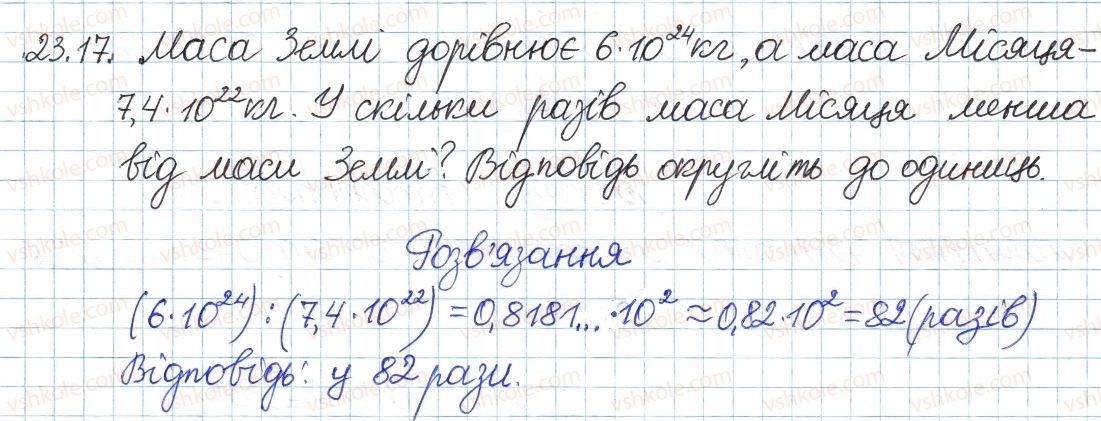 23.17. Маса Землі дорівнює 6·10²⁴кг, а маса Місяця–
7,4·10²²кг. У скільки разів маса Місяця менша
від маси Землі? Відповідь округліть до одиниць.
Розв'язання
(6·10²⁴):(7,4·10²²)=0,8181...·10²≈0,82·10²=82(разів)
Відповідь: у 82 рази.